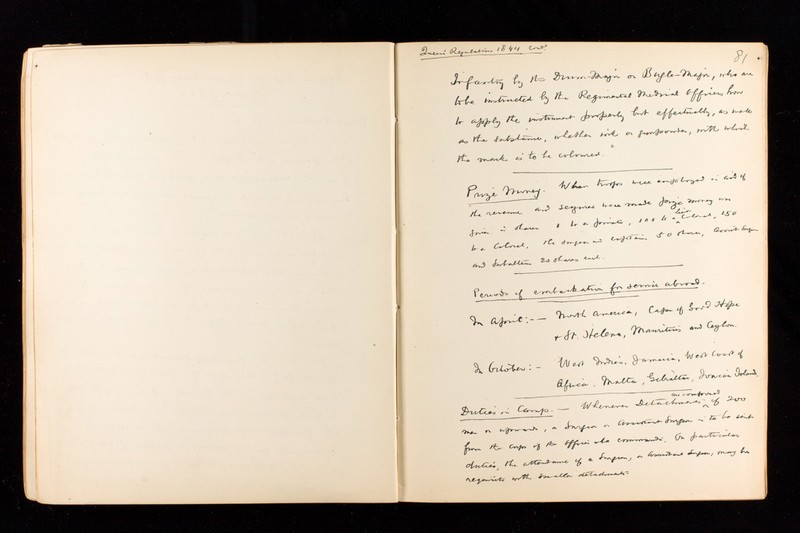 Queen's Regulations 1844 Contd
81
Infantry by the Drum-Major or Bugle-Major, who are
to be instructed by the Regimental Medical Officers how
to apply the instrument properly but effectually, as well
as the substance, whether ink or gunpowder, with which
the mark is to be coloured."
Prize Money. When troops were employed in aid of
the revenue and seizures were made prize money was
given in shares 1 to a private, 100 to Lieut
Colonel, 150
to a Colonel, the surgeon and Captain 50 shares, Assist Surgn
and Subaltern 20 shares each.
Periods of embarkation for service abroad.
In April:— North America, Cape of Good Hope
+ St. Helena, Mauritius and Ceylon.
In October:— West Indies, Jamaica, West Coast of
Africa, Malta, Gibraltar, Ionian Islands
Duties in Camp.— Whenever Detachments are composed of 200
men or upwards, a Surgeon or Assistant Surgeon is to be sent
from the Corps of the Officer who commands. On particular
duties, the attendance of a Surgeon, or Assistant Surgeon, may be
requisite with smaller detachments